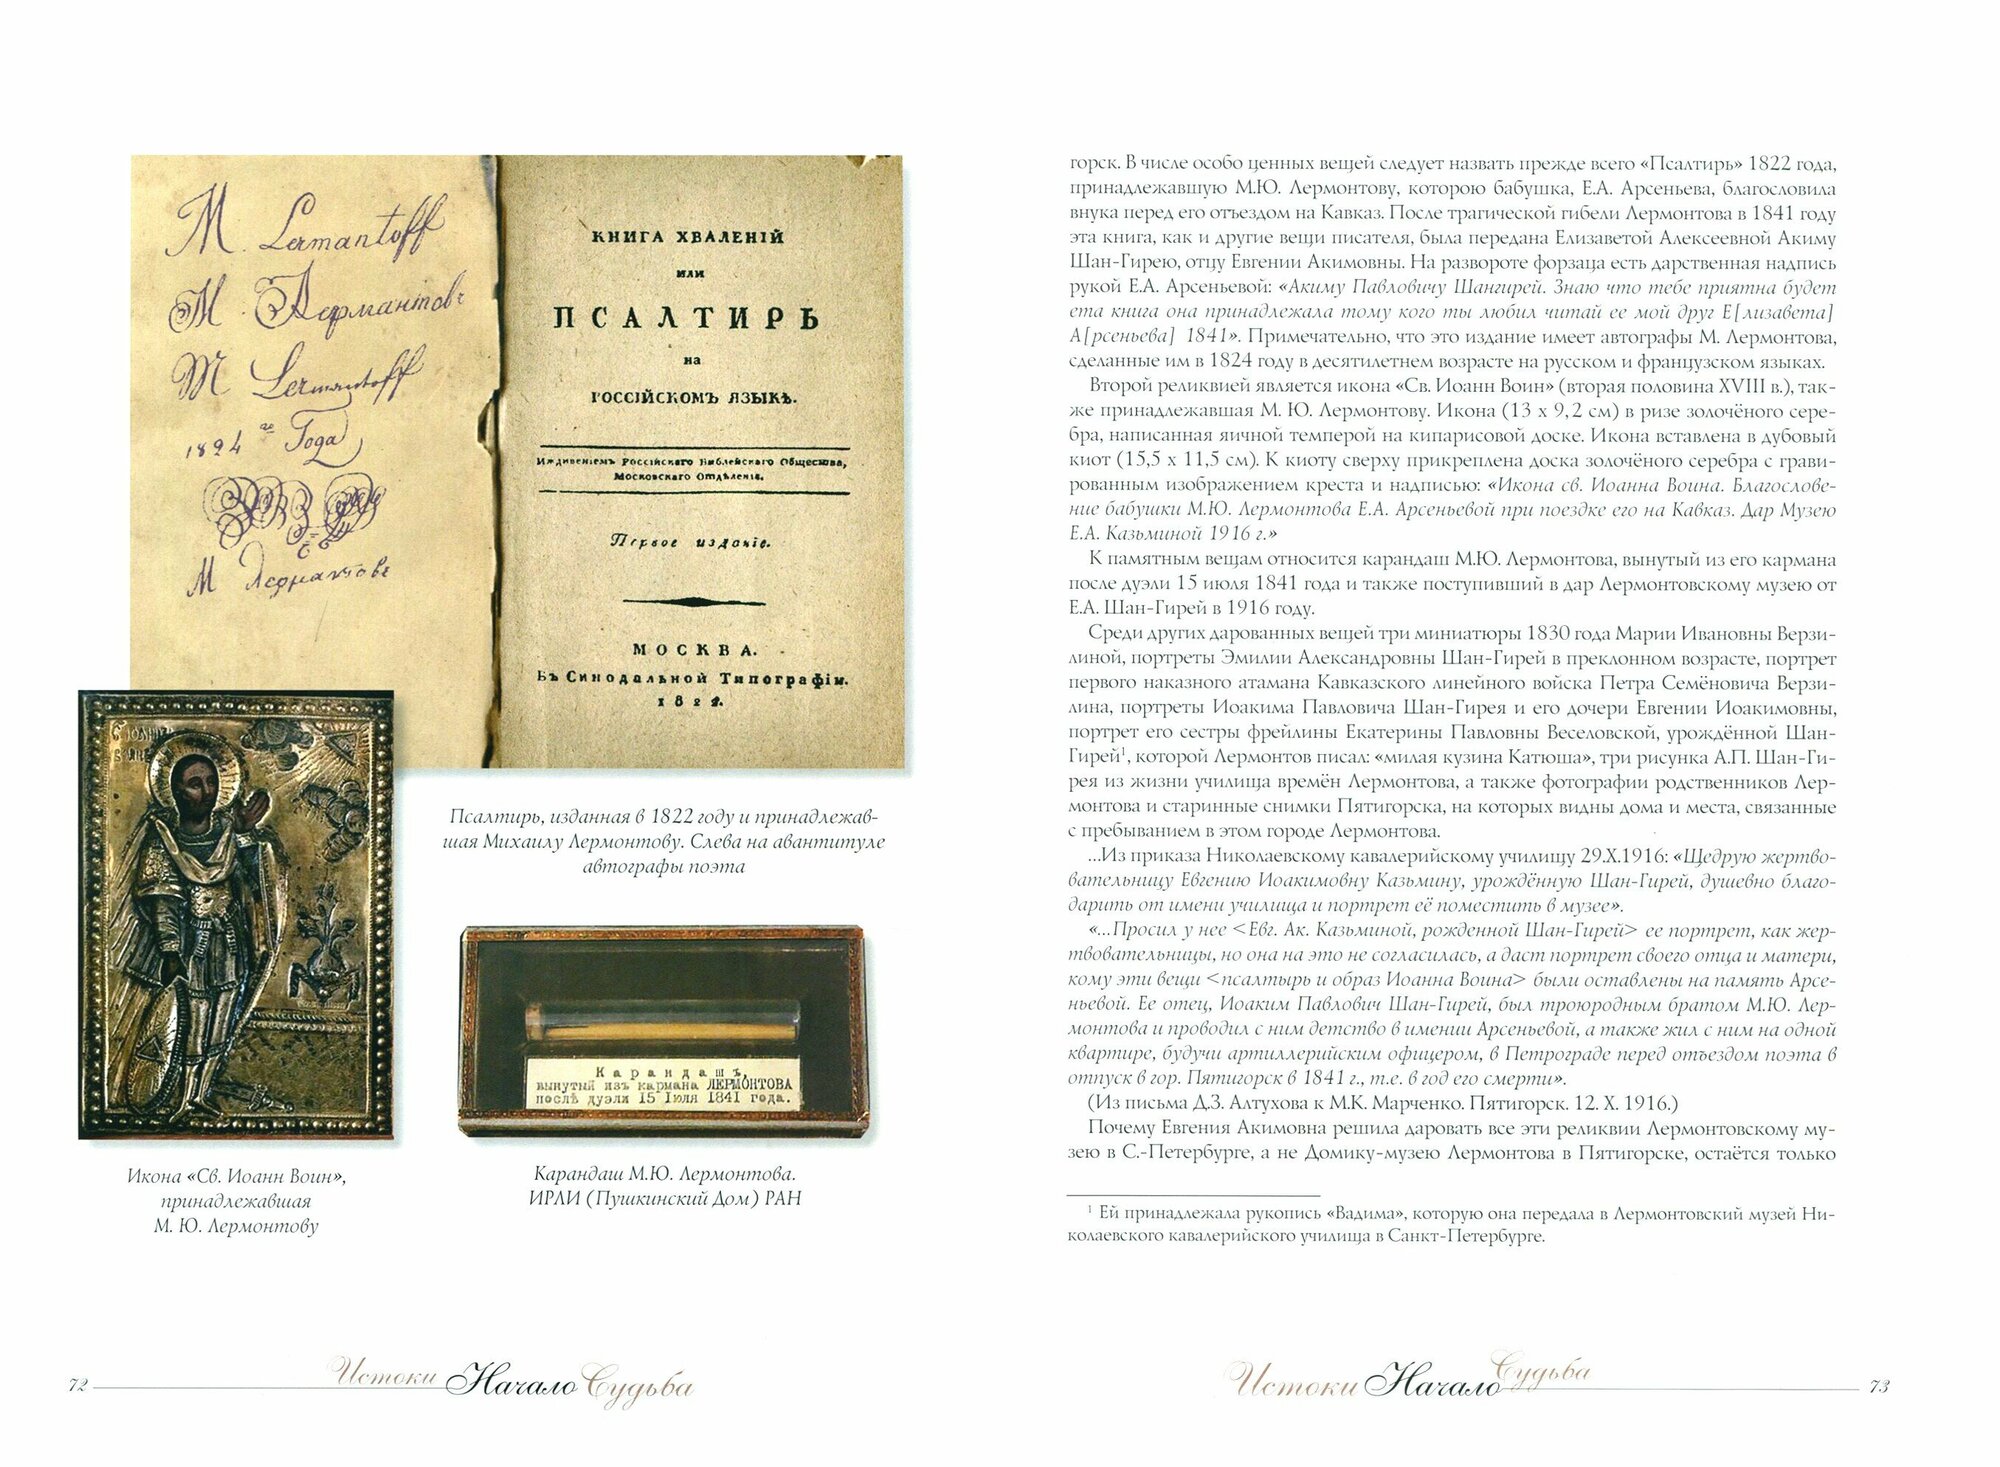 M. Lermantoff
М. Лермантовъ
M Lermantoff
1824 го Года
М Лермантовъ
КНИГА ХВАЛЕНІЙ
или
ПСАЛТИРЬ
на
РОССІЙСКОМЪ ЯЗЫКѢ.
Иждивеніемъ Россійскаго Библейскаго Общества,
Московскаго Отдѣленія.
Первое изданіе.
МОСКВА.
Въ Синодальной Типографіи.
1822.
Псалтирь, изданная в 1822 году и принадлежав-
шая Михаилу Лермонтову. Слева на авантитуле
автографы поэта
Карандашъ,
вынутый изъ кармана ЛЕРМОНТОВА
послѣ дуэли 15 Іюля 1841 года.
Икона «Св. Иоанн Воин»,
принадлежавшая
М. Ю. Лермонтову
Карандаш М.Ю. Лермонтова.
ИРЛИ (Пушкинский Дом) РАН
72
Истоки Начало Судьба
горск. В числе особо ценных вещей следует назвать прежде всего «Псалтирь» 1822 года,
принадлежавшую М.Ю. Лермонтову, которою бабушка, Е.А. Арсеньева, благословила
внука перед его отъездом на Кавказ. После трагической гибели Лермонтова в 1841 году
эта книга, как и другие вещи писателя, была передана Елизаветой Алексеевной Акиму
Шан-Гирею, отцу Евгении Акимовны. На развороте форзаца есть дарственная надпись
рукой Е.А. Арсеньевой: «Акиму Павловичу Шангирей. Знаю что тебе приятна будет
ета книга она принадлежала тому кого ты любил читай ее мой друг Е[лизавета]
А[рсеньева] 1841». Примечательно, что это издание имеет автографы М. Лермонтова,
сделанные им в 1824 году в десятилетнем возрасте на русском и французском языках.
Второй реликвией является икона «Св. Иоанн Воин» (вторая половина XVIII в.), так-
же принадлежавшая М. Ю. Лермонтову. Икона (13 х 9,2 см) в ризе золочёного сере-
бра, написанная яичной темперой на кипарисовой доске. Икона вставлена в дубовый
киот (15,5 х 11,5 см). К киоту сверху прикреплена доска золочёного серебра с грави-
рованным изображением креста и надписью: «Икона св. Иоанна Воина. Благослове-
ние бабушки М.Ю. Лермонтова Е.А. Арсеньевой при поездке его на Кавказ. Дар Музею
Е.А. Казьминой 1916 г.»
К памятным вещам относится карандаш М.Ю. Лермонтова, вынутый из его кармана
после дуэли 15 июля 1841 года и также поступивший в дар Лермонтовскому музею от
Е.А. Шан-Гирей в 1916 году.
Среди других дарованных вещей три миниатюры 1830 года Марии Ивановны Верзи-
линой, портреты Эмилии Александровны Шан-Гирей в преклонном возрасте, портрет
первого наказного атамана Кавказского линейного войска Петра Семёновича Верзи-
лина, портреты Иоакима Павловича Шан-Гирея и его дочери Евгении Иоакимовны,
портрет его сестры фрейлины Екатерины Павловны Веселовской, урождённой Шан-
Гирей¹, которой Лермонтов писал: «милая кузина Катюша», три рисунка А.П. Шан-Ги-
рея из жизни училища времён Лермонтова, а также фотографии родственников Лер-
монтова и старинные снимки Пятигорска, на которых видны дома и места, связанные
с пребыванием в этом городе Лермонтова.
...Из приказа Николаевскому кавалерийскому училищу 29.X.1916: «Щедрую жертво-
вательницу Евгению Иоакимовну Казьмину, урождённую Шан-Гирей, душевно благо-
дарить от имени училища и портрет её поместить в музее».
«...Просил у нее <Евг. Ак. Казьминой, рожденной Шан-Гирей> ее портрет, как жер-
твовательницы, но она на это не согласилась, а даст портрет своего отца и матери,
кому эти вещи <псалтырь и образ Иоанна Воина> были оставлены на память Арсе-
ньевой. Ее отец, Иоаким Павлович Шан-Гирей, был троюродным братом М.Ю. Лер-
монтова и проводил с ним детство в имении Арсеньевой, а также жил с ним на одной
квартире, будучи артиллерийским офицером, в Петрограде перед отъездом поэта в
отпуск в гор. Пятигорск в 1841 г., т.е. в год его смерти».
(Из письма Д.З. Алтухова к М.К. Марченко. Пятигорск. 12. X. 1916.)
Почему Евгения Акимовна решила даровать все эти реликвии Лермонтовскому му-
зею в С.-Петербурге, а не Домику-музею Лермонтова в Пятигорске, остаётся только
¹ Ей принадлежала рукопись «Вадима», которую она передала в Лермонтовский музей Ни-
колаевского кавалерийского училища в Санкт-Петербурге.
Истоки Начало Судьба
73